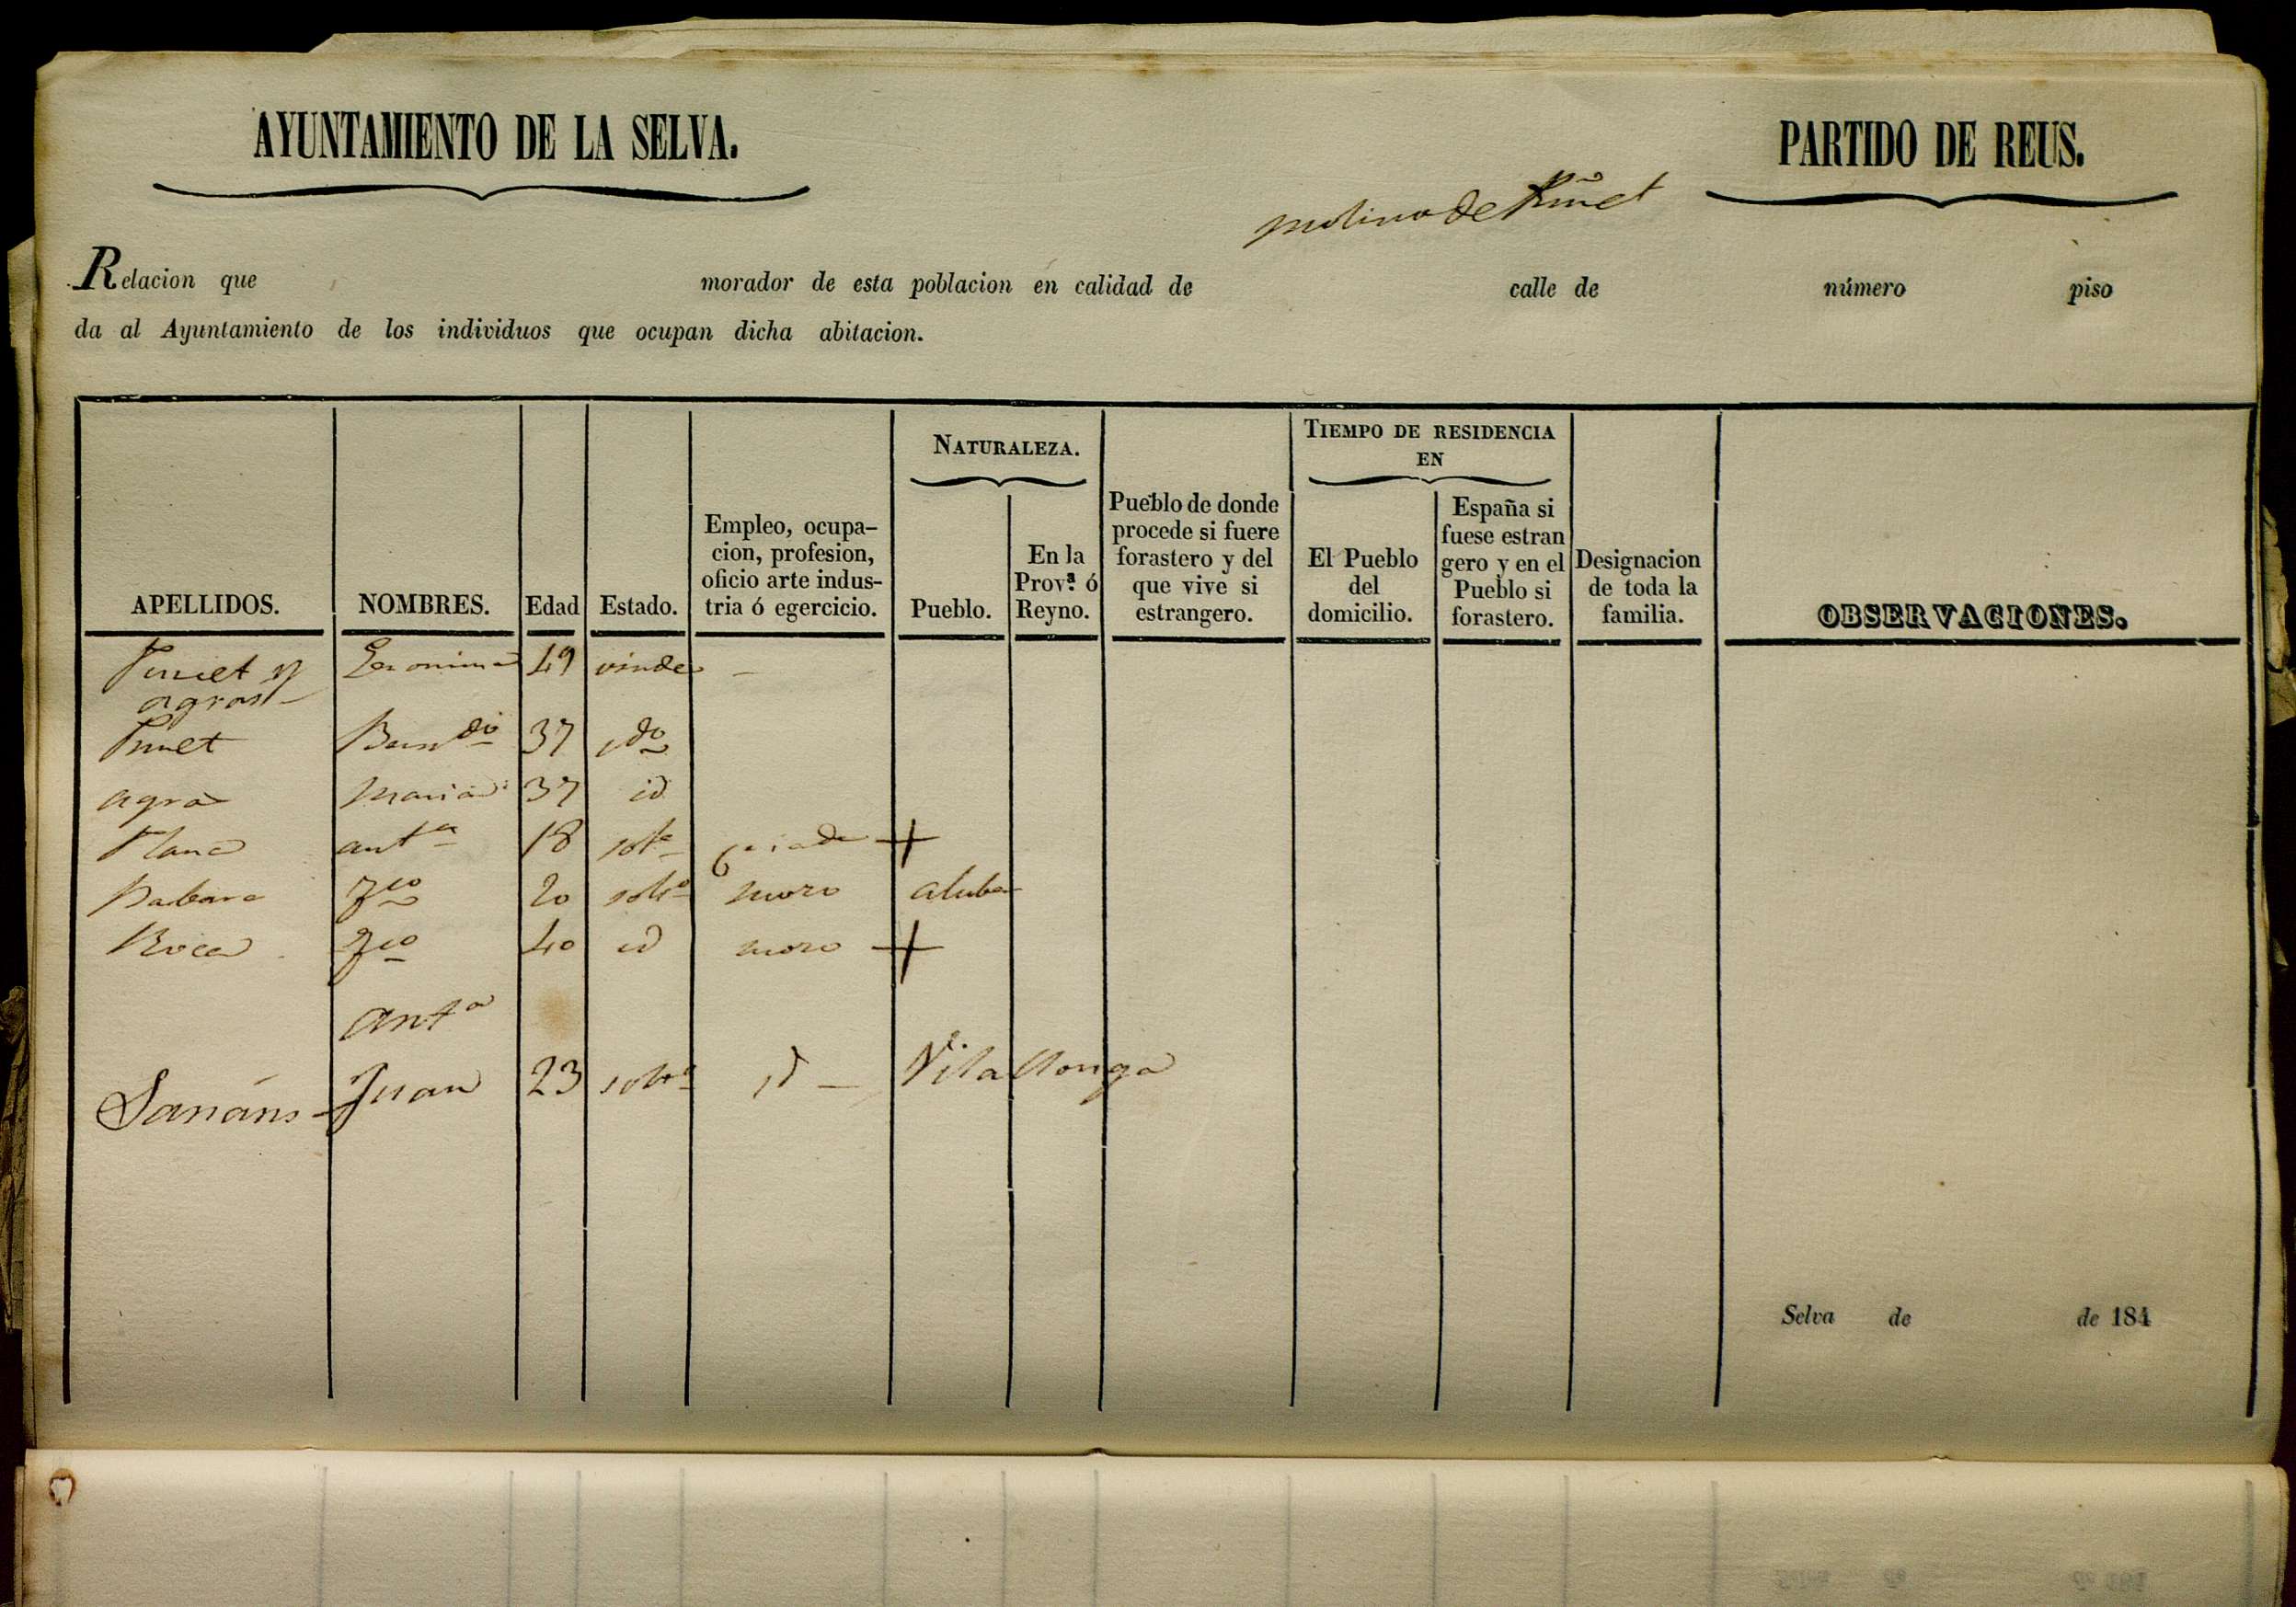 AYUNTAMIENTO DE LA SELVA.
PARTIDO DE REUS.
molino de
Relacion que morador de esta poblacion en calidad de calle de número piso
da al Ayuntamiento de los individuos que ocupan dicha abitacion.
APELLIDOS.
NOMBRES.
Edad
Estado.
Empleo, ocupa-
cion, profesion,
oficio arte indus-
tria ó egercicio.
NATURALEZA.
Pueblo.
En la
Prov.ª ó
Reyno.
Pueblo de donde
procede si fuere
forastero y del
que vive si
estrangero.
TIEMPO DE RESIDENCIA
EN
El Pueblo
del
domicilio.
España si
fuese estran
gero y en el
Pueblo si
forastero.
Designacion
de toda la
familia.
OBSERVACIONES.
y 49
37 ido
agra Maria 37 id
Plana antª 18 solª +
20 solº mozo
Roca 40 id mozo +
antº
Juan 23 solº id Vilallonga
Selva de de 184